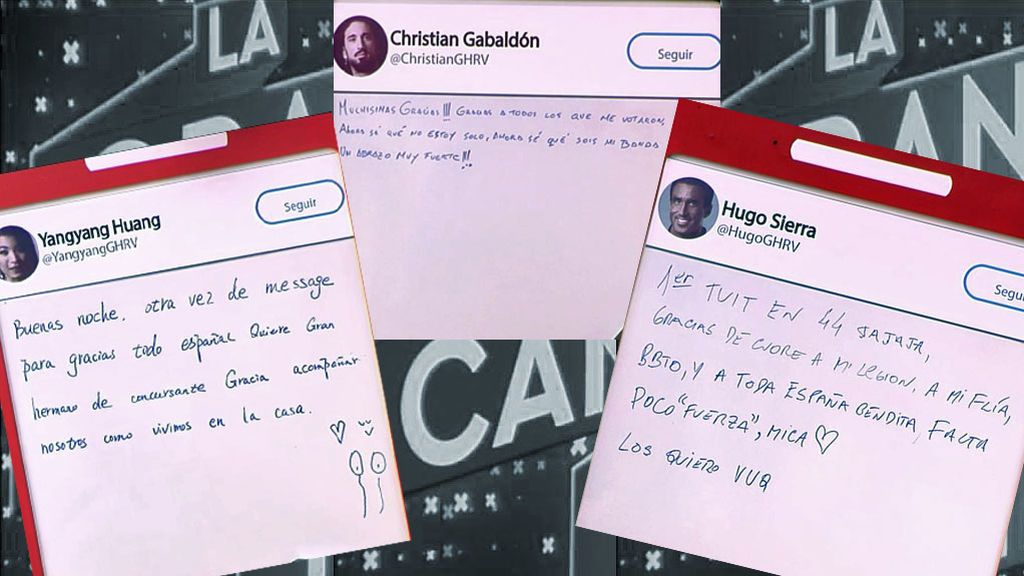 LA
LA
CAN
CAN
Christian Gabaldón
@ChristianGHRV
Seguir
MUCHISIMAS GRACIAS!!! GRACIAS A TODOS LOS QUE ME VOTARON,
AHORA SÉ QUÉ NO ESTOY SOLO, AHORA SÉ QUÉ SOIS MI BANDA
UN ABRAZO MUY FUERTE!!!
Yangyang Huang
@YangyangGHRV
Seguir
Buenas noche. otra vez de message
para gracias todo español Quiere Gran
hermano de concursante Gracia acompañar
nosotros como vivimos en la casa.
Hugo Sierra
@HugoGHRV
Segui
1er TUIT EN 44 JAJAJA,
GRACIAS DE CUORE A MI LEGION, A MI FLÍA,
BBTO, Y A TODA ESPAÑA BENDITA, FALTA
POCO "FUERZA", MICA
LOS QUIERO VUQ